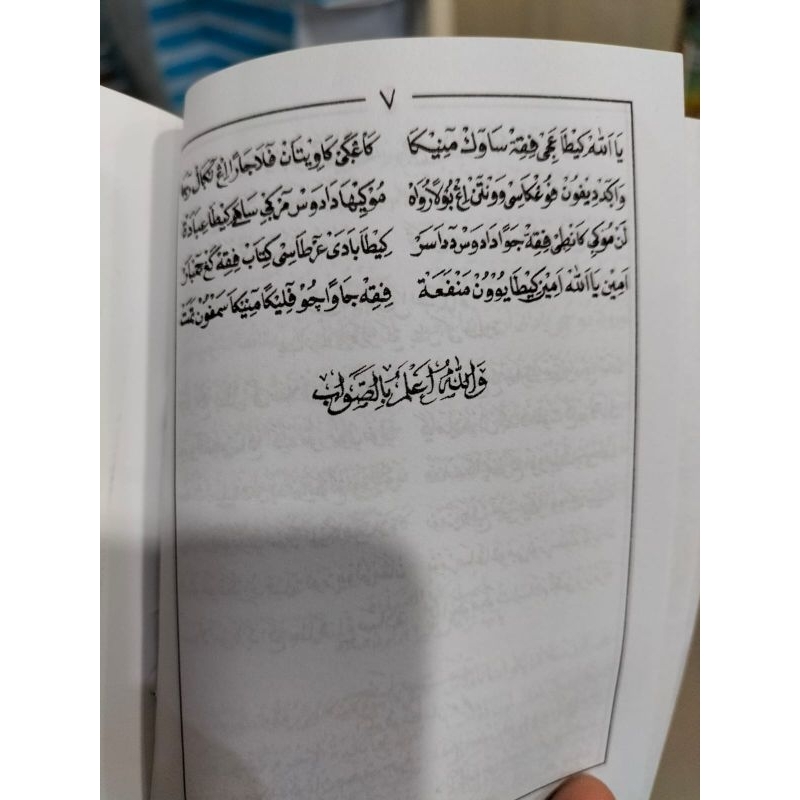 ٧
يَا اَللّٰه كِيطَا عٰجِيْ فِقِهْ سَاوٓكْ مٓنِيْكَا كَاعْكَيْ كَاوِيْتَانْ فٓلَاجَارَا اِڠْ
وَاكٓدْ دِيْفُوْنْ فُوْڠْكَاسَيْ وَوْنْتٓنْ اِڠْ بُوْلَارُوَاهْ مُوْكِيْهَا دَادَوْسْ مٓرْكِيْ سَاهَيْ كِيْطَا عِبَادَةْ
لَنْ مُوْكِيْ كَانْطِيْ فِقِهْ جَوَا دَادَوْسْ دَاسَرْ كِيْطَا بَادَيْ عٓرْطَاسِيْ كِتَابْ فِقِهْ كَڠْ
اٰمِيْن يَا اَللّٰه اٰمِيْن كِيْطَا يُوْوُوْنْ مَنْفَعَةْ فِقِهْ جَاوَا چُوْفْلِيْكَا مٓنِيْكَا سَمْفُوْنْ تَمَّتْ
وَاللّٰهُ اَعْلَمُ بِالصَّوَابِ